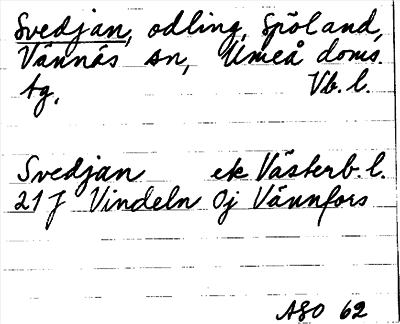 Svedjan, odling, Spöland,
Vännäs sn, Umeå doms.
tg, Vb. l.
Svedjan ek Västerb. l.
21 J Vindeln 0j Vännfors
ASO 62